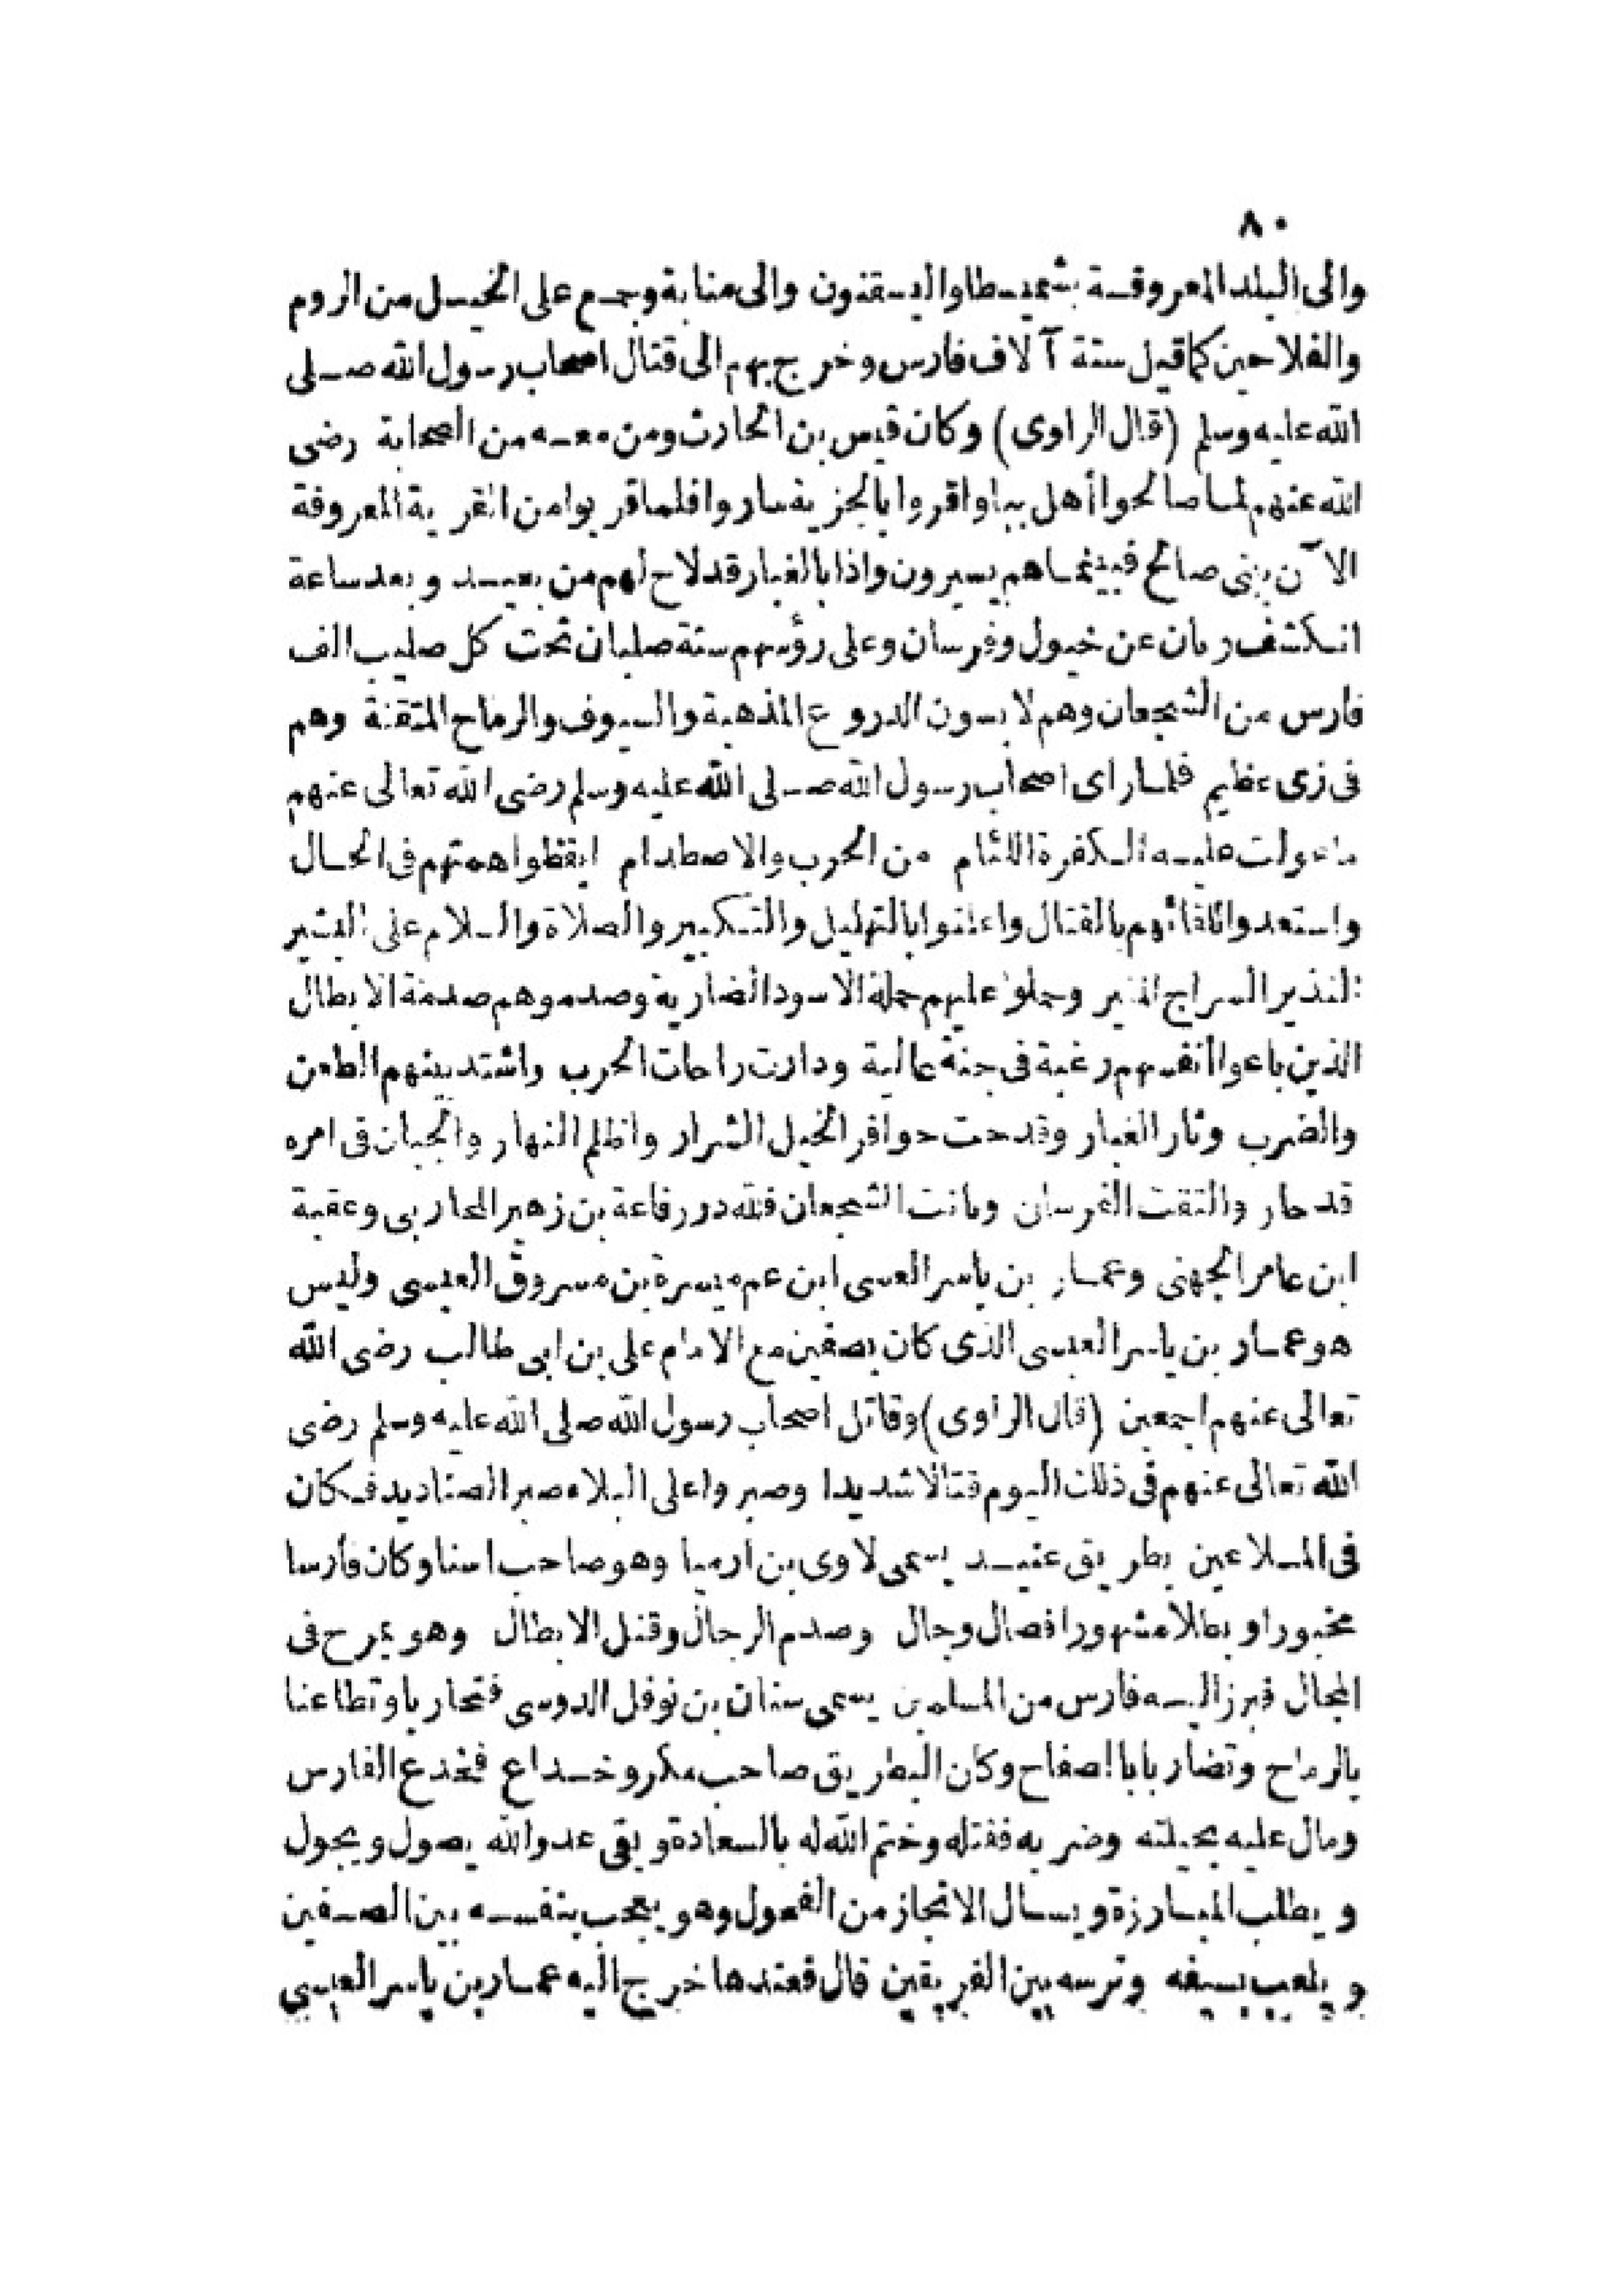 ٨٠
والى البلد المعروفة بشميسطا والى منابة وجمع على الخيل من الروم
والفلاحين كما قيل ستة آلاف فارس وخرج بهم الى قتال اصحاب رسول الله صلى
الله عليه وسلم (قال الراوى) وكان قيس بن الحارث ومن معه من الصحابة رضى
الله عنهم لما صالحوا أهل ببا واقروا بالجزية ساروا فلما قربوا من القرية المعروفة
الآن ببنى صالح فبينما هم يسيرون واذا بالغبار قد لاح لهم من بعيد وبعد ساعة
انكشف وبان عن خيول وفرسان وعلى رؤسهم ستة صلبان تحت كل صليب الف
فارس من الشجعان وهم لابسون الدروع المذهبة والسيوف والرماح المتقنة وهم
فى زى عظيم فلما راى اصحاب رسول الله صلى الله عليه وسلم رضى الله تعالى عنهم
ما عولت عليه الكفرة اللئام من الحرب والاصطدام ايقظوا همتهم فى الحال
واستعدوا للقائهم بالقتال واعلنوا بالتهليل والتكبير والصلاة والسلام على البشير
النذير السراج المنير وحملوا عليهم حملة الاسود الضارية وصدموهم صدمة الابطال
الذين باعوا أنفسهم رغبة فى جنة عالية ودارت راحات الحرب واشتد بينهم الطعن
والضرب وثار الغبار وقدحت حوافر الخيل الشرار واظلم النهار والجبان فى امره
قد حار والتقت الفرسان وبانت الشجعان فلله در رفاعة بن زهير المحاربى وعقبة
ابن عامر الجهنى وعمار بن ياسر العبسى ابن عم ميسرة بن مسروق العبسى وليس
هو عمار بن ياسر العبسى الذى كان بصفين مع الامام على بن ابى طالب رضى الله
تعالى عنهم اجمعين (قال الراوى) وقاتل اصحاب رسول الله صلى الله عليه وسلم رضى
الله تعالى عنهم فى ذلك اليوم قتالا شديدا وصبروا على البلاء صبر الصناديد فكان
فى الملاعين بطريق عنيد يسمى لاوى بن ارميا وهو صاحب اسنا وكان فارسا
مخبورا وبطلا مشهورا فصال وجال وصدم الرجال وقتل الابطال وهو يمرح فى
المجال فبرز اليه فارس من المسلمين يسمى سنان بن نوفل الدوسى فتحاربا وتطاعنا
بالرماح وتضاربا بالصفاح وكان البطريق صاحب مكر وخداع فخدع الفارس
ومال عليه بحيلته وضربه فقتله وختم الله له بالسعادة وبقى عدو الله يصول ويجول
ويطلب المبارزة ويسال الانجاز من الفحول وهو يعجب بنفسه بين الصفين
ويلعب بسيفه وترسه بين الفريقين قال فعندها خرج اليه عمار بن ياسر العبسى